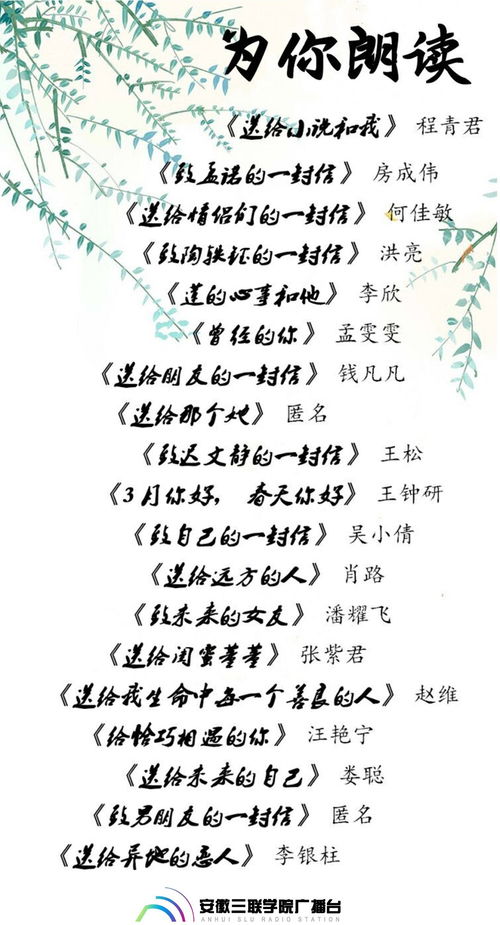 为你朗读
《送给小说和我》 程青君
《致孟诺的一封信》 房成伟
《送给情侣们的一封信》 何佳敏
《致陶轶钰的一封信》 洪亮
《莲的心事和他》 李欣
《曾经的你》 孟雯雯
《送给朋友的一封信》 钱凡凡
《送给那个她》 匿名
《致迟文静的一封信》 王松
《3月你好， 春天你好》 王钟研
《致自己的一封信》 吴小倩
《送给远方的人》 肖路
《致未来的女友》 潘耀飞
《送给闺蜜董董》 张紫君
《送给我生命中每一个善良的人》 赵维
《给恰巧相遇的你》 汪艳宁
《送给未来的自己》 娄聪
《致男朋友的一封信》 匿名
《送给异地的恋人》 李银柱
安徽三联学院广播台
ANHUI SLU RADIO STATION